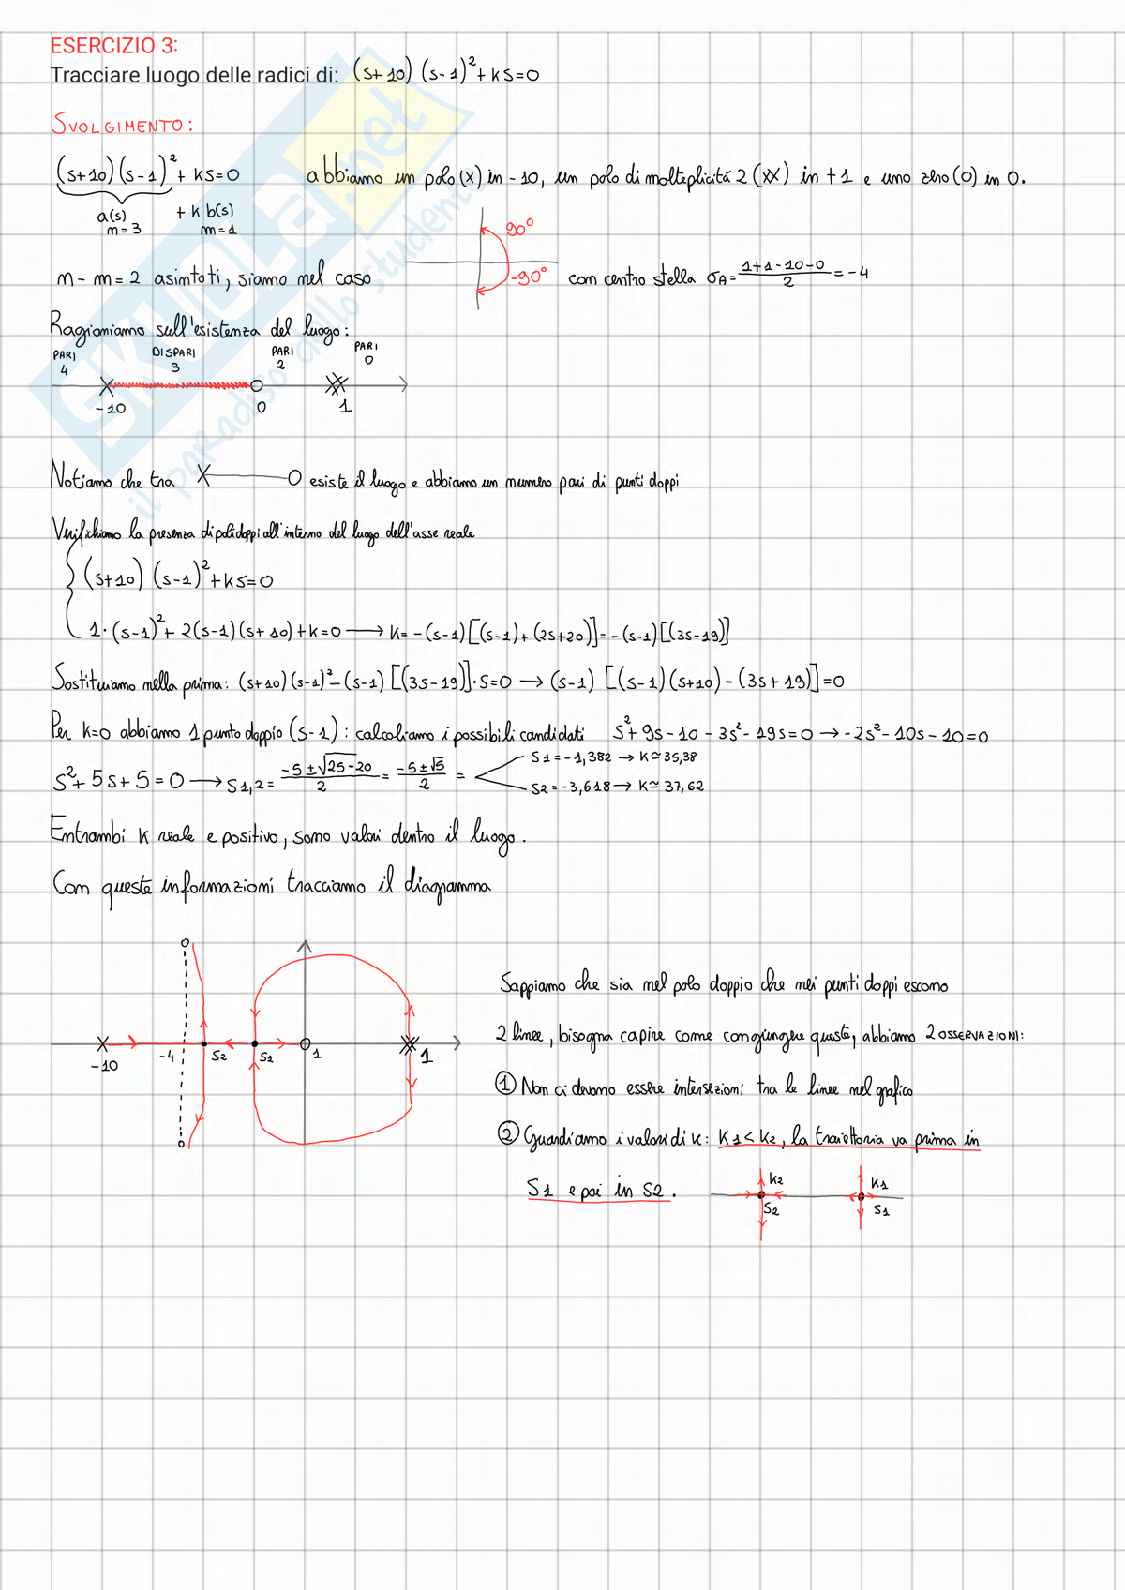 ESERCIZIO 3:
Tracciare luogo delle radici di: (s+10) (s-1)²+ks=0
SVOLGIMENTO:
(s+10)(s-1)²+ks=0 abbiamo un polo(x) in -10, un polo di molteplicità 2 (xx) in +1 e uno zero(0) in 0.
a(s) + k b(s)
m=3 m=1
90°
-90°
m-m=2 asintoti, siamo nel caso con centro stella σA=(1+1-10-0)/2=-4
Ragioniamo sull'esistenza del luogo:
PARI DISPARI PARI PARI
4 3 2 0
-10 0 1
Notiamo che tra X O esiste il luogo e abbiamo un numero pari di punti doppi
Verifichiamo la presenza di poli doppi all'interno del luogo dell'asse reale
{(s+10) (s-1)²+ks=0
1·(s-1)²+2(s-1)(s+10)+k=0 → k=-(s-1)[(s-1)+(2s+20)]=-(s-1)[(3s-19)]
Sostituiamo nella prima: (s+10)(s-1)²-(s-1)[(3s-19)]·s=0 → (s-1) [(s-1)(s+10)-(3s+19)]=0
Per k=0 abbiamo 1 punto doppio (s-1): calcoliamo i possibili candidati s²+9s-10-3s²-19s=0 → -2s²-10s-10=0
s²+5s+5=0 → s1,2=(-5±√25-20)/2=(-5±√5)/2=
s1=-1,382 → k≃35,38
s2=-3,618 → k≃37,62
Entrambi k reale e positivo, sono valori dentro il luogo.
Con queste informazioni tracciamo il diagramma
-10 -4 s2 s2 1 1
Sappiamo che sia nel polo doppio che nei punti doppi escono
2 linee, bisogna capire come congiungere queste, abbiamo 2 OSSERVAZIONI:
① Non ci devono essere intersezioni tra le linee nel grafico
② Guardiamo i valori di k: k1<k2, la traiettoria va prima in
s1 e poi in s2.
k2 k1
s2 s1
SKUOLA.net
il paradiso dello studente